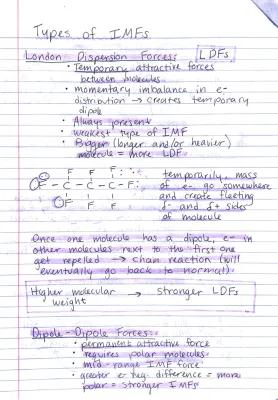 Types of IMFs
London Dispersion Forces: LDFs
• Temporary attractive forces
between molecules
• momentary imbalance in e-
distribution → creates temporary
dipole
• Always present
• weakest type of IMF
• Bigger (longer and/or heavier)
molecule = more LDF
F F F
F - C - C - C - F
F F F
temporarily, mass
of e- go somewhere
and create fleeting
δ- and δ+ sides
of molecule
Once one molecule has a dipole, e- in
other molecules next to the first one
get repelled → chain reaction (will
eventually go back to normal).
Higher molecular → stronger LDFs
weight
Dipole-Dipole Forces:
• permanent attractive force
• requires polar molecules
• mid-range IMF force
• greater e- neg. difference = more
polar = stronger IMFs